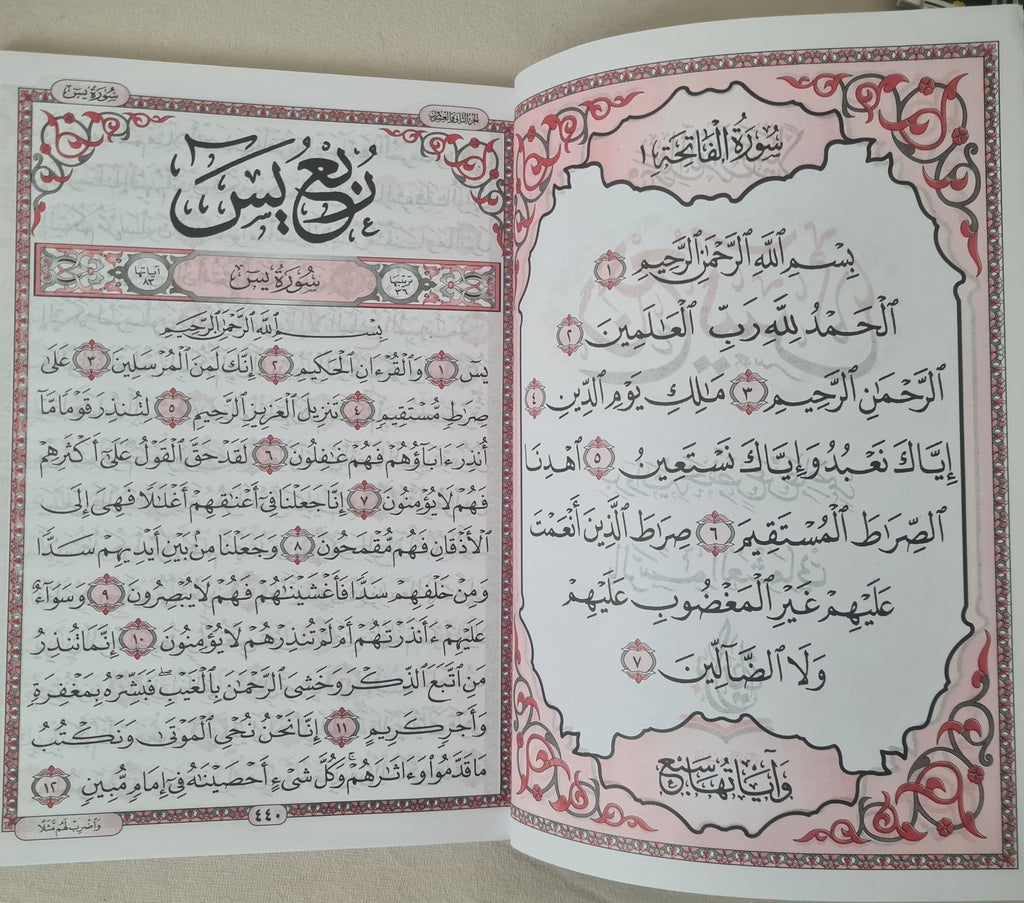 سُورَةُ الْفَاتِحَةِ ١
بِسْمِ ٱللَّهِ ٱلرَّحْمَٰنِ ٱلرَّحِيمِ ١
ٱلْحَمْدُ لِلَّهِ رَبِّ ٱلْعَٰلَمِينَ ٢
ٱلرَّحْمَٰنِ ٱلرَّحِيمِ ٣ مَٰلِكِ يَوْمِ ٱلدِّينِ ٤
إِيَّاكَ نَعْبُدُ وَإِيَّاكَ نَسْتَعِينُ ٥ ٱهْدِنَا
ٱلصِّرَٰطَ ٱلْمُسْتَقِيمَ ٦ صِرَٰطَ ٱلَّذِينَ أَنْعَمْتَ
عَلَيْهِمْ غَيْرِ ٱلْمَغْضُوبِ عَلَيْهِمْ
وَلَا ٱلضَّآلِّينَ ٧
وَآيَاتُهَا سَبْعٌ
الجزء الثاني والعشرون
سُورَةُ يسٓ
رُبْعُ يسٓ
ترتيبها ٣٦
سُورَةُ يسٓ
آياتها ٨٣
بِسْمِ ٱللَّهِ ٱلرَّحْمَٰنِ ٱلرَّحِيمِ
يسٓ ١ وَٱلْقُرْءَانِ ٱلْحَكِيمِ ٢ إِنَّكَ لَمِنَ ٱلْمُرْسَلِينَ ٣ عَلَىٰ
صِرَٰطٍ مُّسْتَقِيمٍ ٤ تَنزِيلَ ٱلْعَزِيزِ ٱلرَّحِيمِ ٥ لِتُنذِرَ قَوْمًا مَّآ
أُنذِرَ ءَابَآؤُهُمْ فَهُمْ غَٰفِلُونَ ٦ لَقَدْ حَقَّ ٱلْقَوْلُ عَلَىٰٓ أَكْثَرِهِمْ
فَهُمْ لَا يُؤْمِنُونَ ٧ إِنَّا جَعَلْنَا فِىٓ أَعْنَٰقِهِمْ أَغْلَٰلًا فَهِىَ إِلَى
ٱلْأَذْقَانِ فَهُم مُّقْمَحُونَ ٨ وَجَعَلْنَا مِنۢ بَيْنِ أَيْدِيهِمْ سَدًّا
وَمِنْ خَلْفِهِمْ سَدًّا فَأَغْشَيْنَٰهُمْ فَهُمْ لَا يُبْصِرُونَ ٩ وَسَوَآءٌ
عَلَيْهِمْ ءَأَنذَرْتَهُمْ أَمْ لَمْ تُنذِرْهُمْ لَا يُؤْمِنُونَ ١٠ إِنَّمَا تُنذِرُ
مَنِ ٱتَّبَعَ ٱلذِّكْرَ وَخَشِىَ ٱلرَّحْمَٰنَ بِٱلْغَيْبِ ۖ فَبَشِّرْهُ بِمَغْفِرَةٍ
وَأَجْرٍ كَرِيمٍ ١١ إِنَّا نَحْنُ نُحْىِ ٱلْمَوْتَىٰ وَنَكْتُبُ
مَا قَدَّمُوا۟ وَءَاثَٰرَهُمْ ۚ وَكُلَّ شَىْءٍ أَحْصَيْنَٰهُ فِىٓ إِمَامٍ مُّبِينٍ ١٢
٤٤٠
وَٱضْرِبْ لَهُم مَّثَلًا